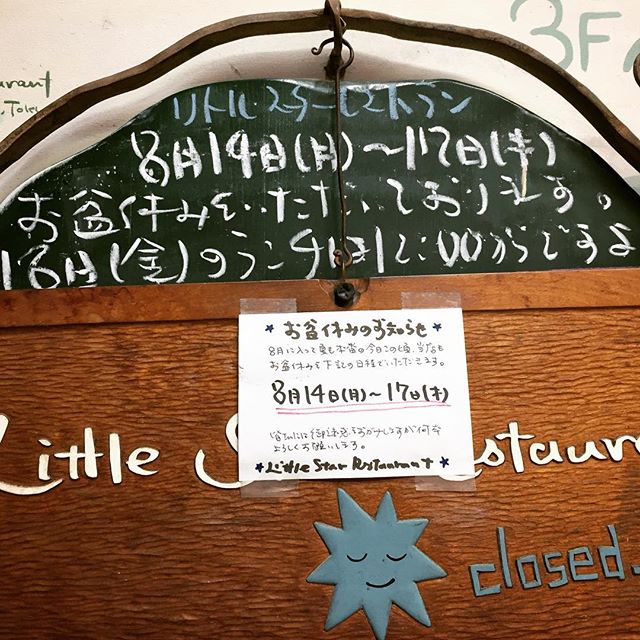 3F
リトルスターレストラン
8月14日(月)〜17日(木)
お盆休みをいただいております。
18日(金)のランチは12:00からですよ
★ お盆休みのお知らせ ★
8月に入って夏も本番の今日この頃、当店も
お盆休みを下記の日程でいただきます。
8月14日(月)〜17日(木)
皆さんには御迷惑をおかけしますが何卒
よろしくお願いします。
★Little Star Restaurant★
Little S estaur
closed.